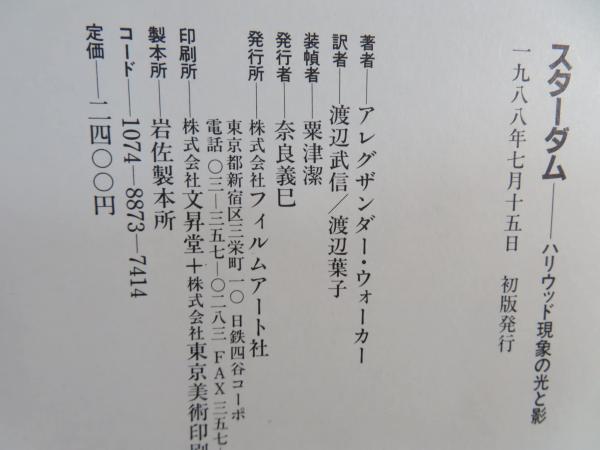 スターダム──ハリウッド現象の光と影
一九八八年七月十五日 初版発行
著者──アレグザンダー・ウォーカー
訳者──渡辺武信／渡辺葉子
装幀者──粟津潔
発行者──奈良義巳
発行所──株式会社フィルムアート社
東京都新宿区三栄町一〇 日鉄四谷コーポ
電話 〇三─三五七─〇二八三 FAX三五七─
印刷所──株式会社文昇堂＋株式会社東京美術印刷
製本所──岩佐製本所
コード──1074─8873─7414
定価──二四〇〇円